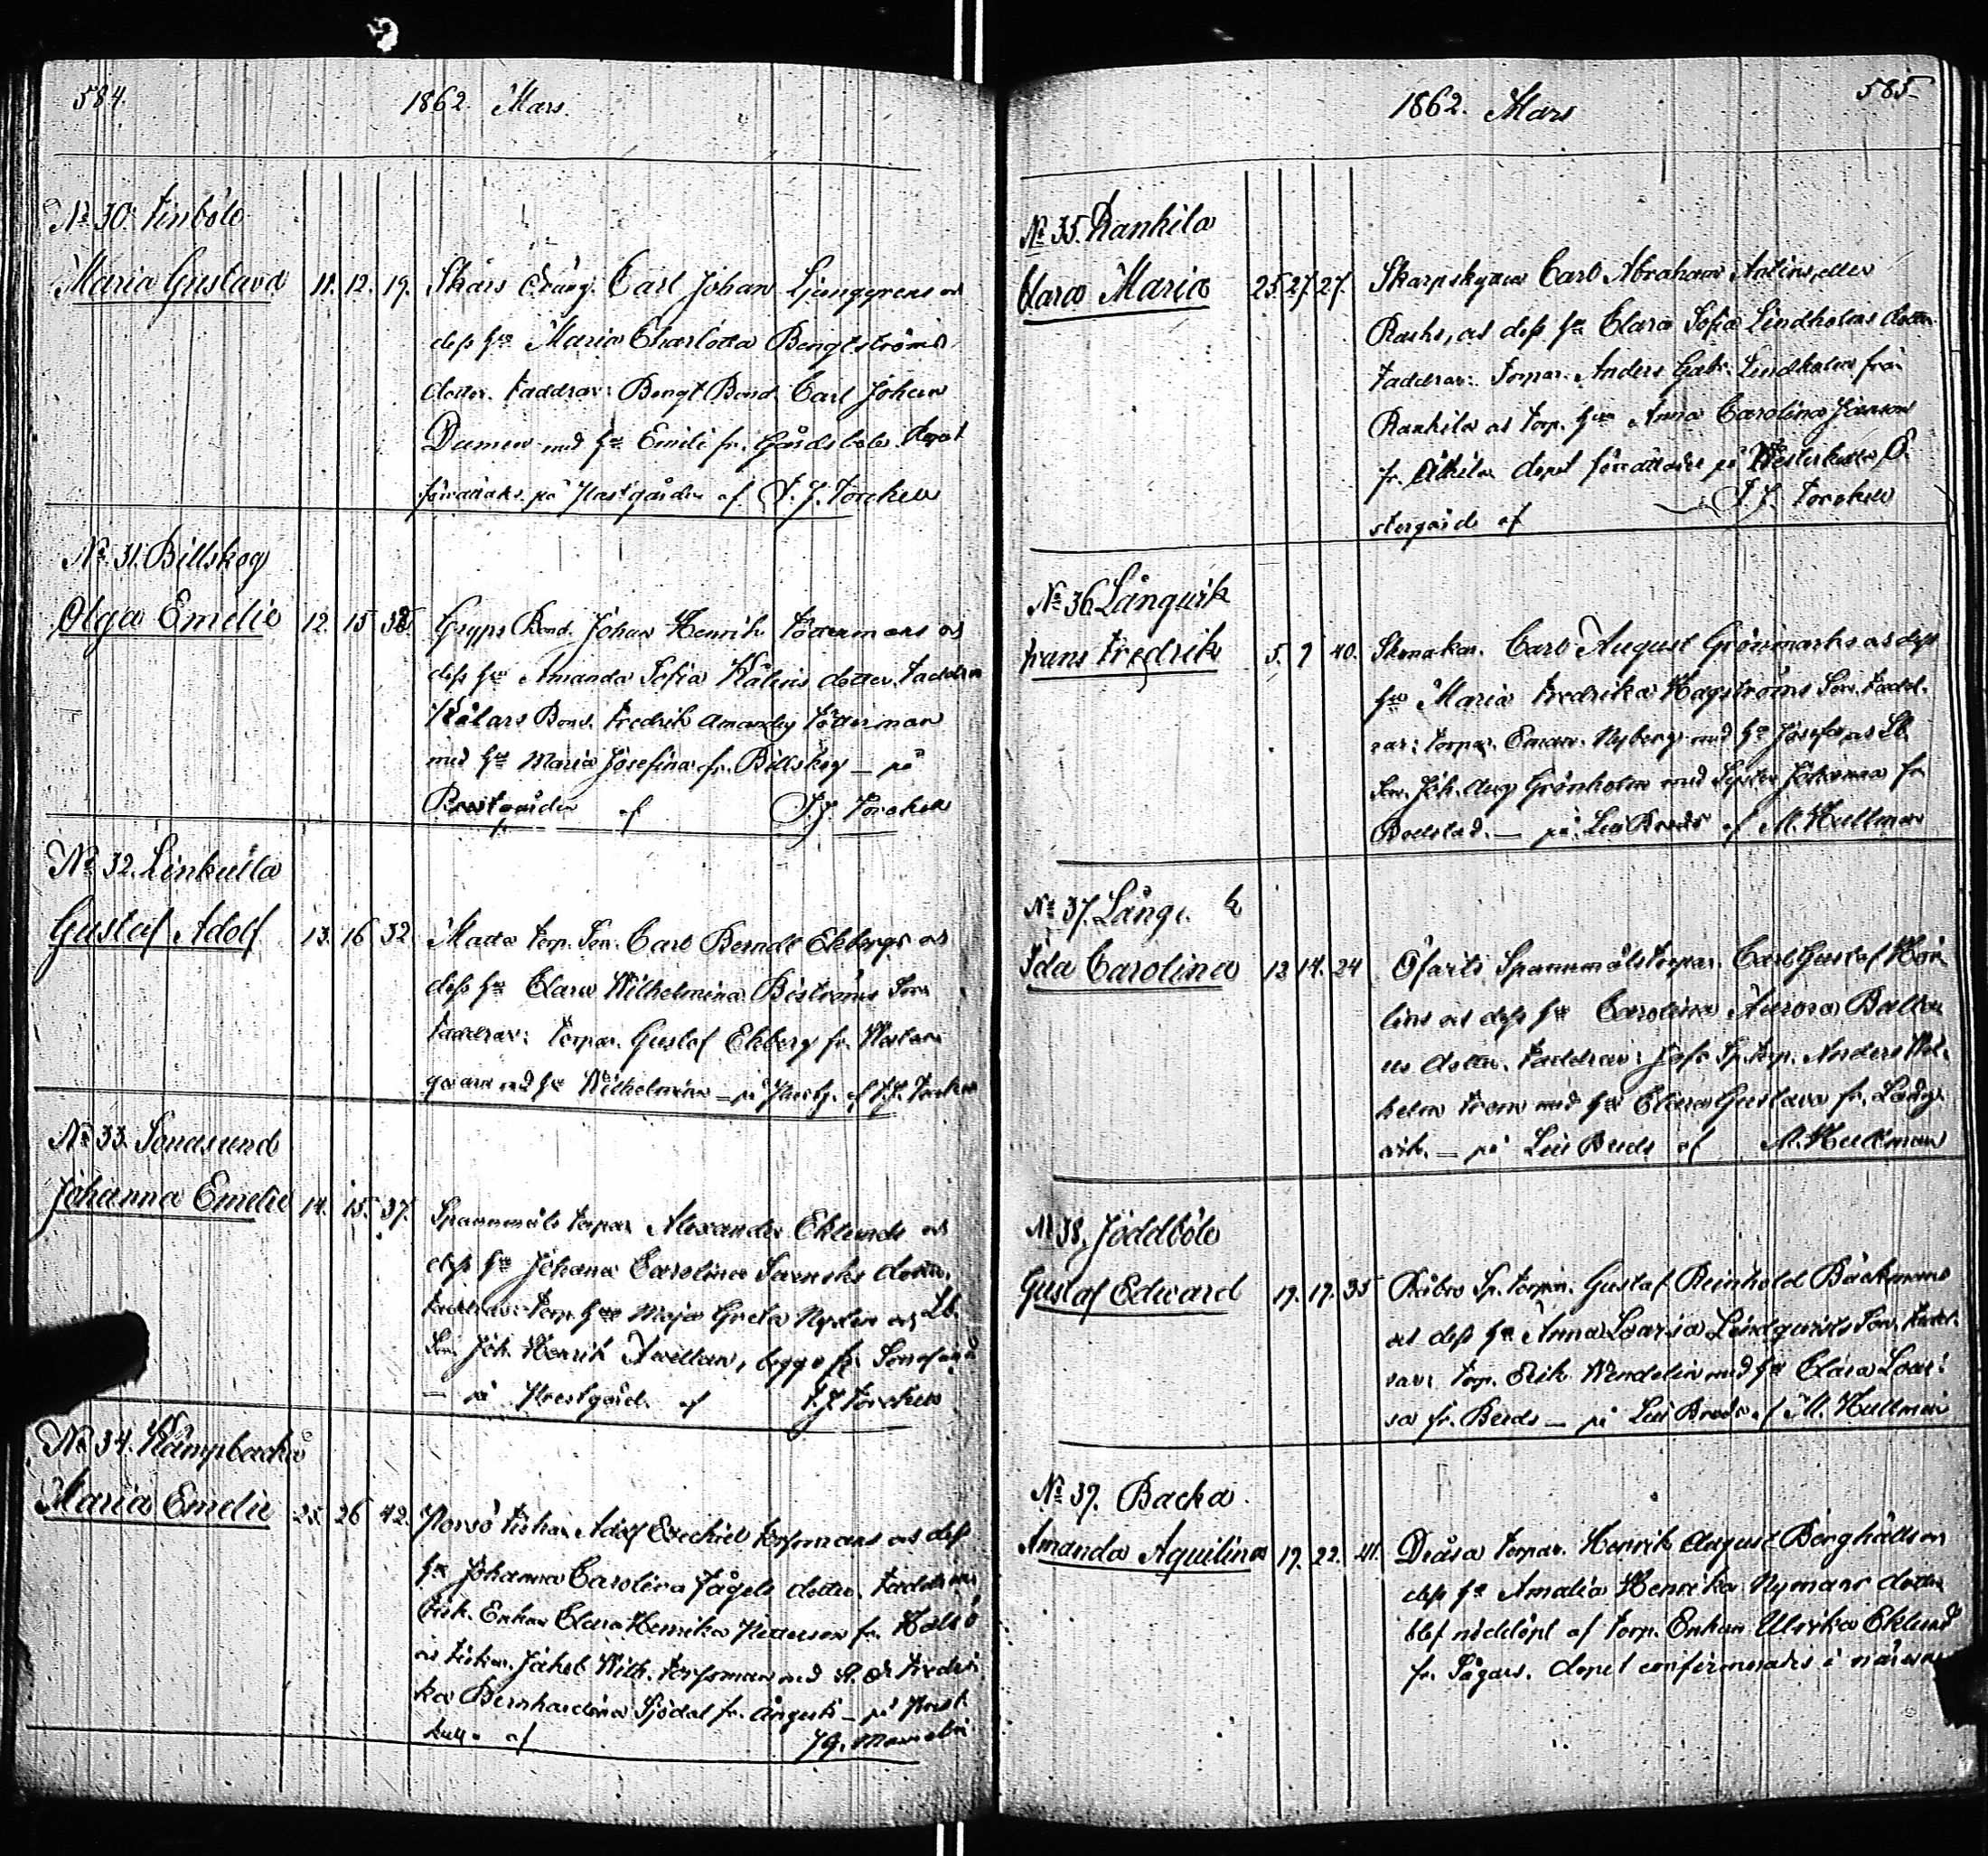 584.
1862. Mars.
No 30. Finböle
Maria Gustava 11. 12. 19. Skårs Carl Johan Ljunggrens och
dess hu Maria Charlotta Bengtströms
dotter. Faddrar: Bengt Bond. Carl Johan
Damen med hu Emili fr. Gårdsböle. Dopet
förrättades på Prästgården af F. J. Forsheu
No 31. Billskog
Olga Emelie 12. 15 Gryps Bond. Johan Henrik Töttermans och
dess hu Amanda Sofia Kålins dotter. Faddrar
Kålars Bond. Fredrik Amandey Tötterman
med hu Maria Josefina fr. Billskog — på
Prestgården af F. J.
No 32. Linkulla
Gustaf Adolf 13. 16 32. Matts Torp. Son. Carl Berndt Ekbergs och
dess hu Clara Wilhelmina Biströms Son
Faddrar: Torpar. Gustaf Ekberg fr. Westan
med hu Wilhelmina — på af F. J.
No 33. Sonasund
Johanna Emelie 14. 15. 37. Spannmåls torpar Alexander Eklunds och
dess hu Johana Carolina Svensks dotter.
Faddrar: Torp. hu Maja Greta Nyden och Lb.
Son Joh. Henrik Avellan, begge fr.
— på Prestgård. af F. J.
No 34. Kämpbacka
Maria Emelie 25. 26 42. Porsö Fiskar Adolf Ezechiel Forsmans och dess
hu Johanna Carolina Fågels dotter. Faddrar
Fisk. Enkan Clara Henrika Petterson fr. Halsö
och Fiskar. Jakob Wilh. Forsman med Fredri
ka Bernhardina Sjödal fr. — på Prest
kulla af
585
1862. Mars
No 35. Rankila
Clara Maria 25. 27. 27. Skarpskytten Carl Abraham Antins eller
Rasks, och dess hu Clara Sofia Lindholms dotter
Faddrar: Torpar. Anders Gabr. Lindholm från
Rankila och Torp. hu Anna Carolina Jansons
fr. Dopet förrättades på Westerkulla Ö
stergårds af F. J.
No 36. Långvik
Frans Fredrik 5. 9 40. Skomakar. Carl August Grönmarks och dess
hu Maria Fredrika Hagströms Son. Fadd-
rar: Torpar. Eman. Nyberg med hu Josefa och Lb.
Son. Joh. Aug Grönholm med Syster Johanna fr
Bodstad. — på Lill Breds af M. Hullman
No 37. Långv k
Ida Carolina 13 14. 24 Öfarts Spannmålstorpar. Carl Gustaf
lins och dess hu Carolina Aurora
us dotter. Faddrar: Sp. torp. Anders Wil-
helm From med hu Clara Gustava fr. Lång-
vik. — på Lill Breds af M. Hullman
No 38. Joddböle
Gustaf Edward 17. 19. 35 Sp. torpar. Gustaf Reinhold Bäckmans
och dess hu Anna Lovisa Lindqvists Son. Fadd-
rar: Torp. Erik Wendelin med hu Clara Lovi-
sa fr. Breds — på Lill Breds af M. Hullman
No 39. Backa.
Amanda Aquilina 19. 22. 41. Dråsa torpar. Henrik August Berghälls och
dess hu Amalia Henrika Nymans dotter
blef nöddöpt af Torp. Enkan Ulrika Eklund
fr. Sågars. Dopet confirmerades i närvaro